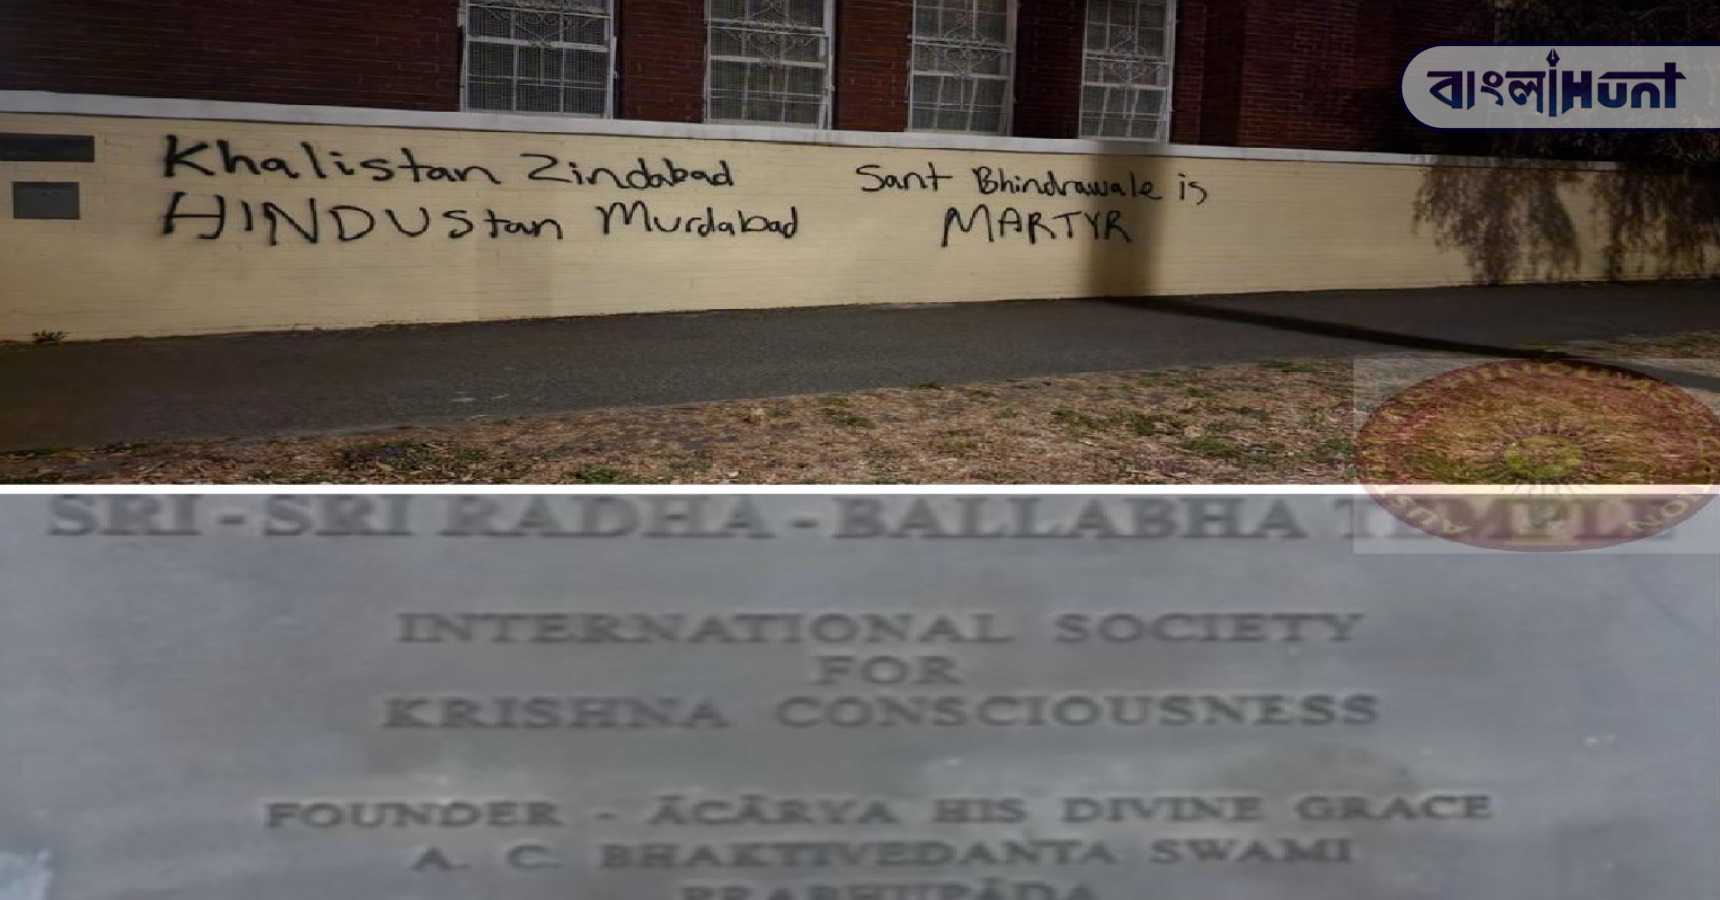 বাংলাHunt
Khalistan Zindabad
HINDUStan Murdabad
Sant Bhindrawale is
MARTYR
SRI - SRI RADHA - BALLABHA TEMPLE
INTERNATIONAL SOCIETY
FOR
KRISHNA CONSCIOUSNESS
FOUNDER - ĀCĀRYA HIS DIVINE GRACE
A. C. BHAKTIVEDANTA SWAMI
PRABHUPĀDA